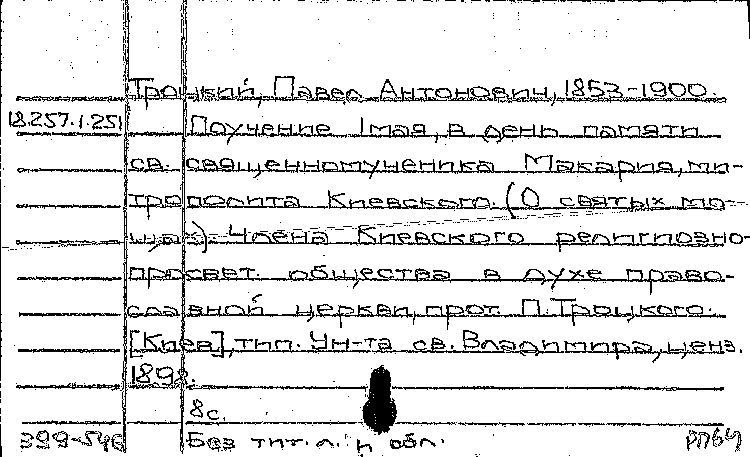 Троцкий, Павел Антонович, 1853-1900.
18.257.1.251 Поучение 1 мая, в день памяти
св. священномученика Макария, ми-
трополита Киевского. (О святых мо-
щах). Члена Киевского религиозно-
просвет. общества в духе право-
славной церкви, прот. П. Троцкого.
[Киев], тип. Ун-та св. Владимира, ценз.
1898.
8 с.
399-546 Без тит. л. и обл. РП64